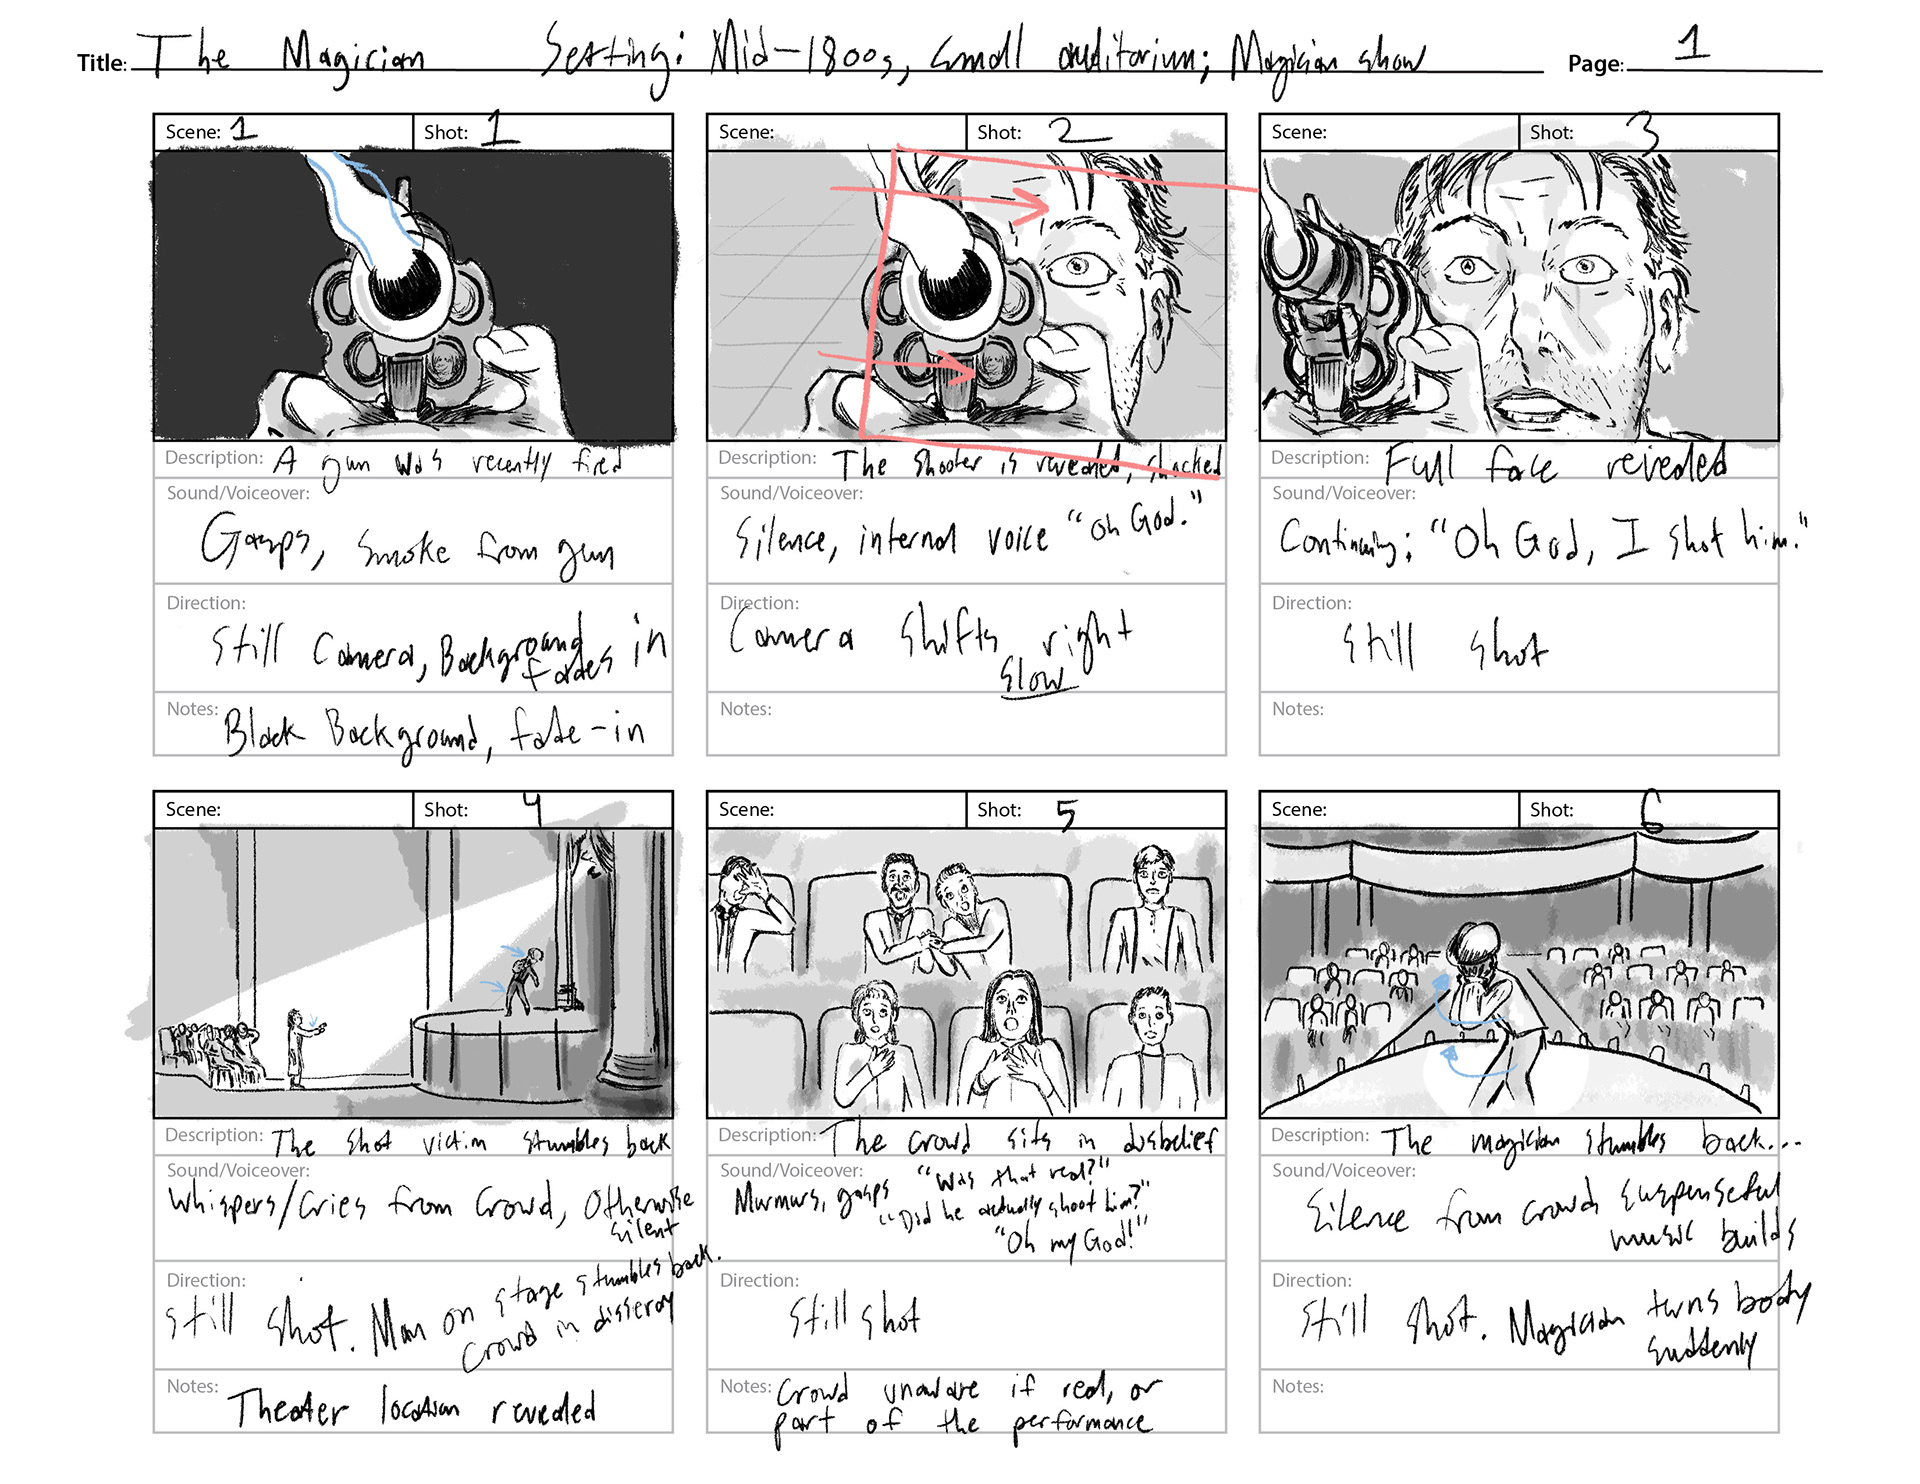 Title: The Magician Setting: Mid-1800s, small auditorium; Magician show Page: 1
Scene: 1 Shot: 1
Description: A gun was recently fired
Sound/Voiceover:
Gasps, smoke from gun
Direction:
Still Camera, Background
fades in
Notes: Black Background, fade-in
Scene: Shot: 2
Description: The shooter is revealed, shocked
Sound/Voiceover:
Silence, internal voice "Oh God."
Direction:
Camera shifts right
slow
Notes:
Scene: Shot: 3
Description: Full face revealed
Sound/Voiceover:
Continuing; "Oh God, I shot him."
Direction:
Still shot
Notes:
Scene: Shot: 4
Description: The shot victim stumbles back
Sound/Voiceover:
Whispers/Cries from Crowd, Otherwise
silent
Direction:
Still shot. Man on stage stumbles back.
Crowd in disseray
Notes:
Theater location revealed
Scene: Shot: 5
Description: The crowd sits in disbelief
Sound/Voiceover: "Was that real?"
Murmurs, gasps
"Did he actually shoot him?"
"Oh my God!"
Direction:
Still shot
Notes: Crowd unaware if real, or
part of the performance
Scene: Shot: 6
Description: The magician stumbles back...
Sound/Voiceover:
Silence from crowd suspenseful
music builds
Direction:
Still shot. Magician turns body
suddenly
Notes: